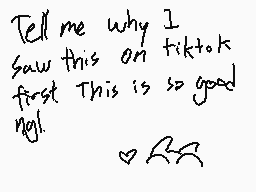 Tell me why I
saw this on tiktok
first This is so good
ngl.